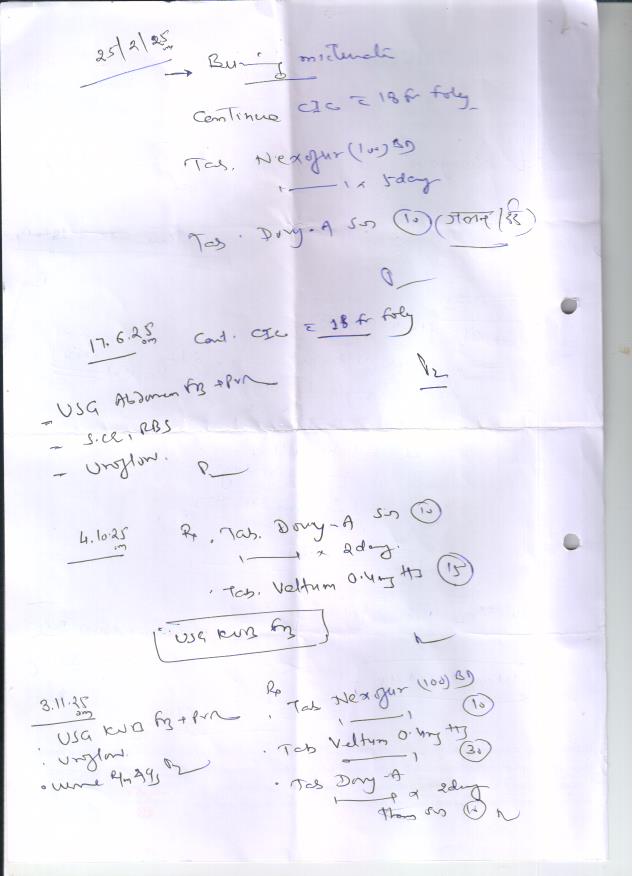 25/2/25
→ Burning micturation
Continue CIC c 18 fr foley
Tab. Nexofur (100) BD
1——1 x 5day
Tab. Dovy-A SOS (10) (जलन/दर्द)
17.6.25
Cont. CIC c 18 fr foley
- USG Abdomen + PVR
- S.CR, RBS
- Uroflow.
4.10.25
Rx. Tab. Dovy-A SOS (10)
1——1 x 2day.
Tab. Veltum 0.4mg HS (15)
USG KUB
3.11.25
Rx
Tab Nexofur (100) BD
1——1 (10)
USG KUB + PVR
Uroflow.
Urine R/m
Tab Veltum 0.4mg HS
(30)
Tab Dovy-A
1——1 x 2day
then SOS (10)